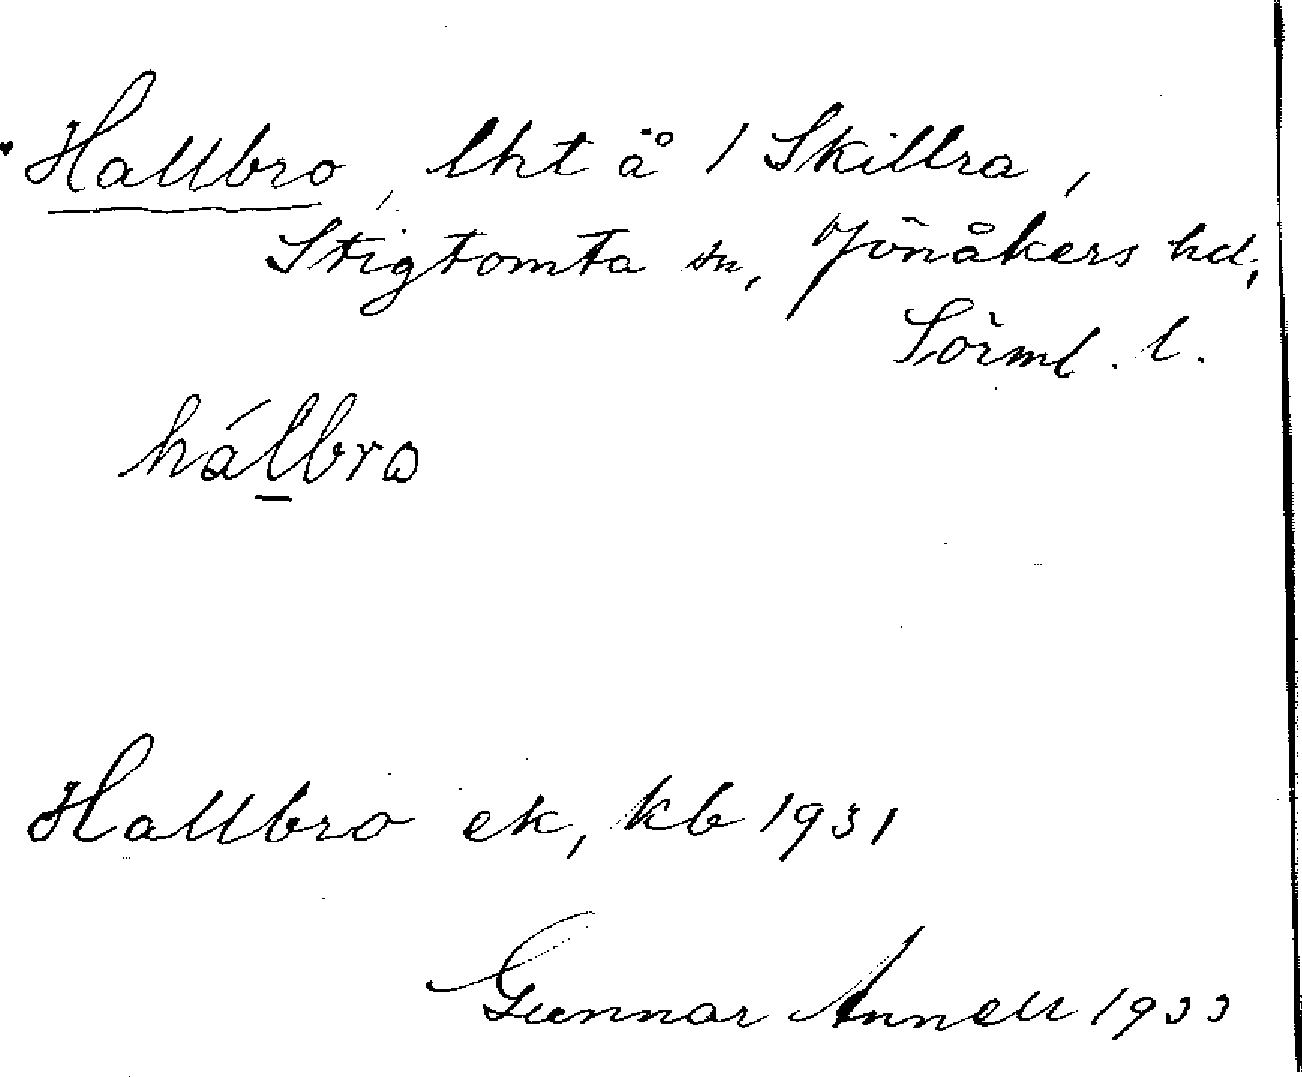 Hallbro, lht å 1 Skillra,
Stigtomta sn, Jönåkers hd,
Sörml. l.
hálbro
Hallbro ek, kb 1931
Gunnar Annell 1933